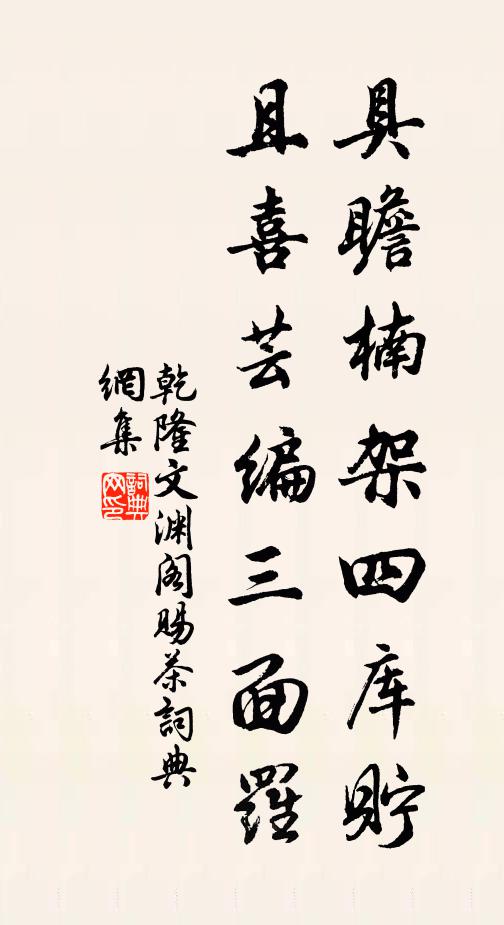 具瞻楠架四库貯
且喜芸编三面羅
乾隆文渊阁賜茶詞典
網集
詞典
网印